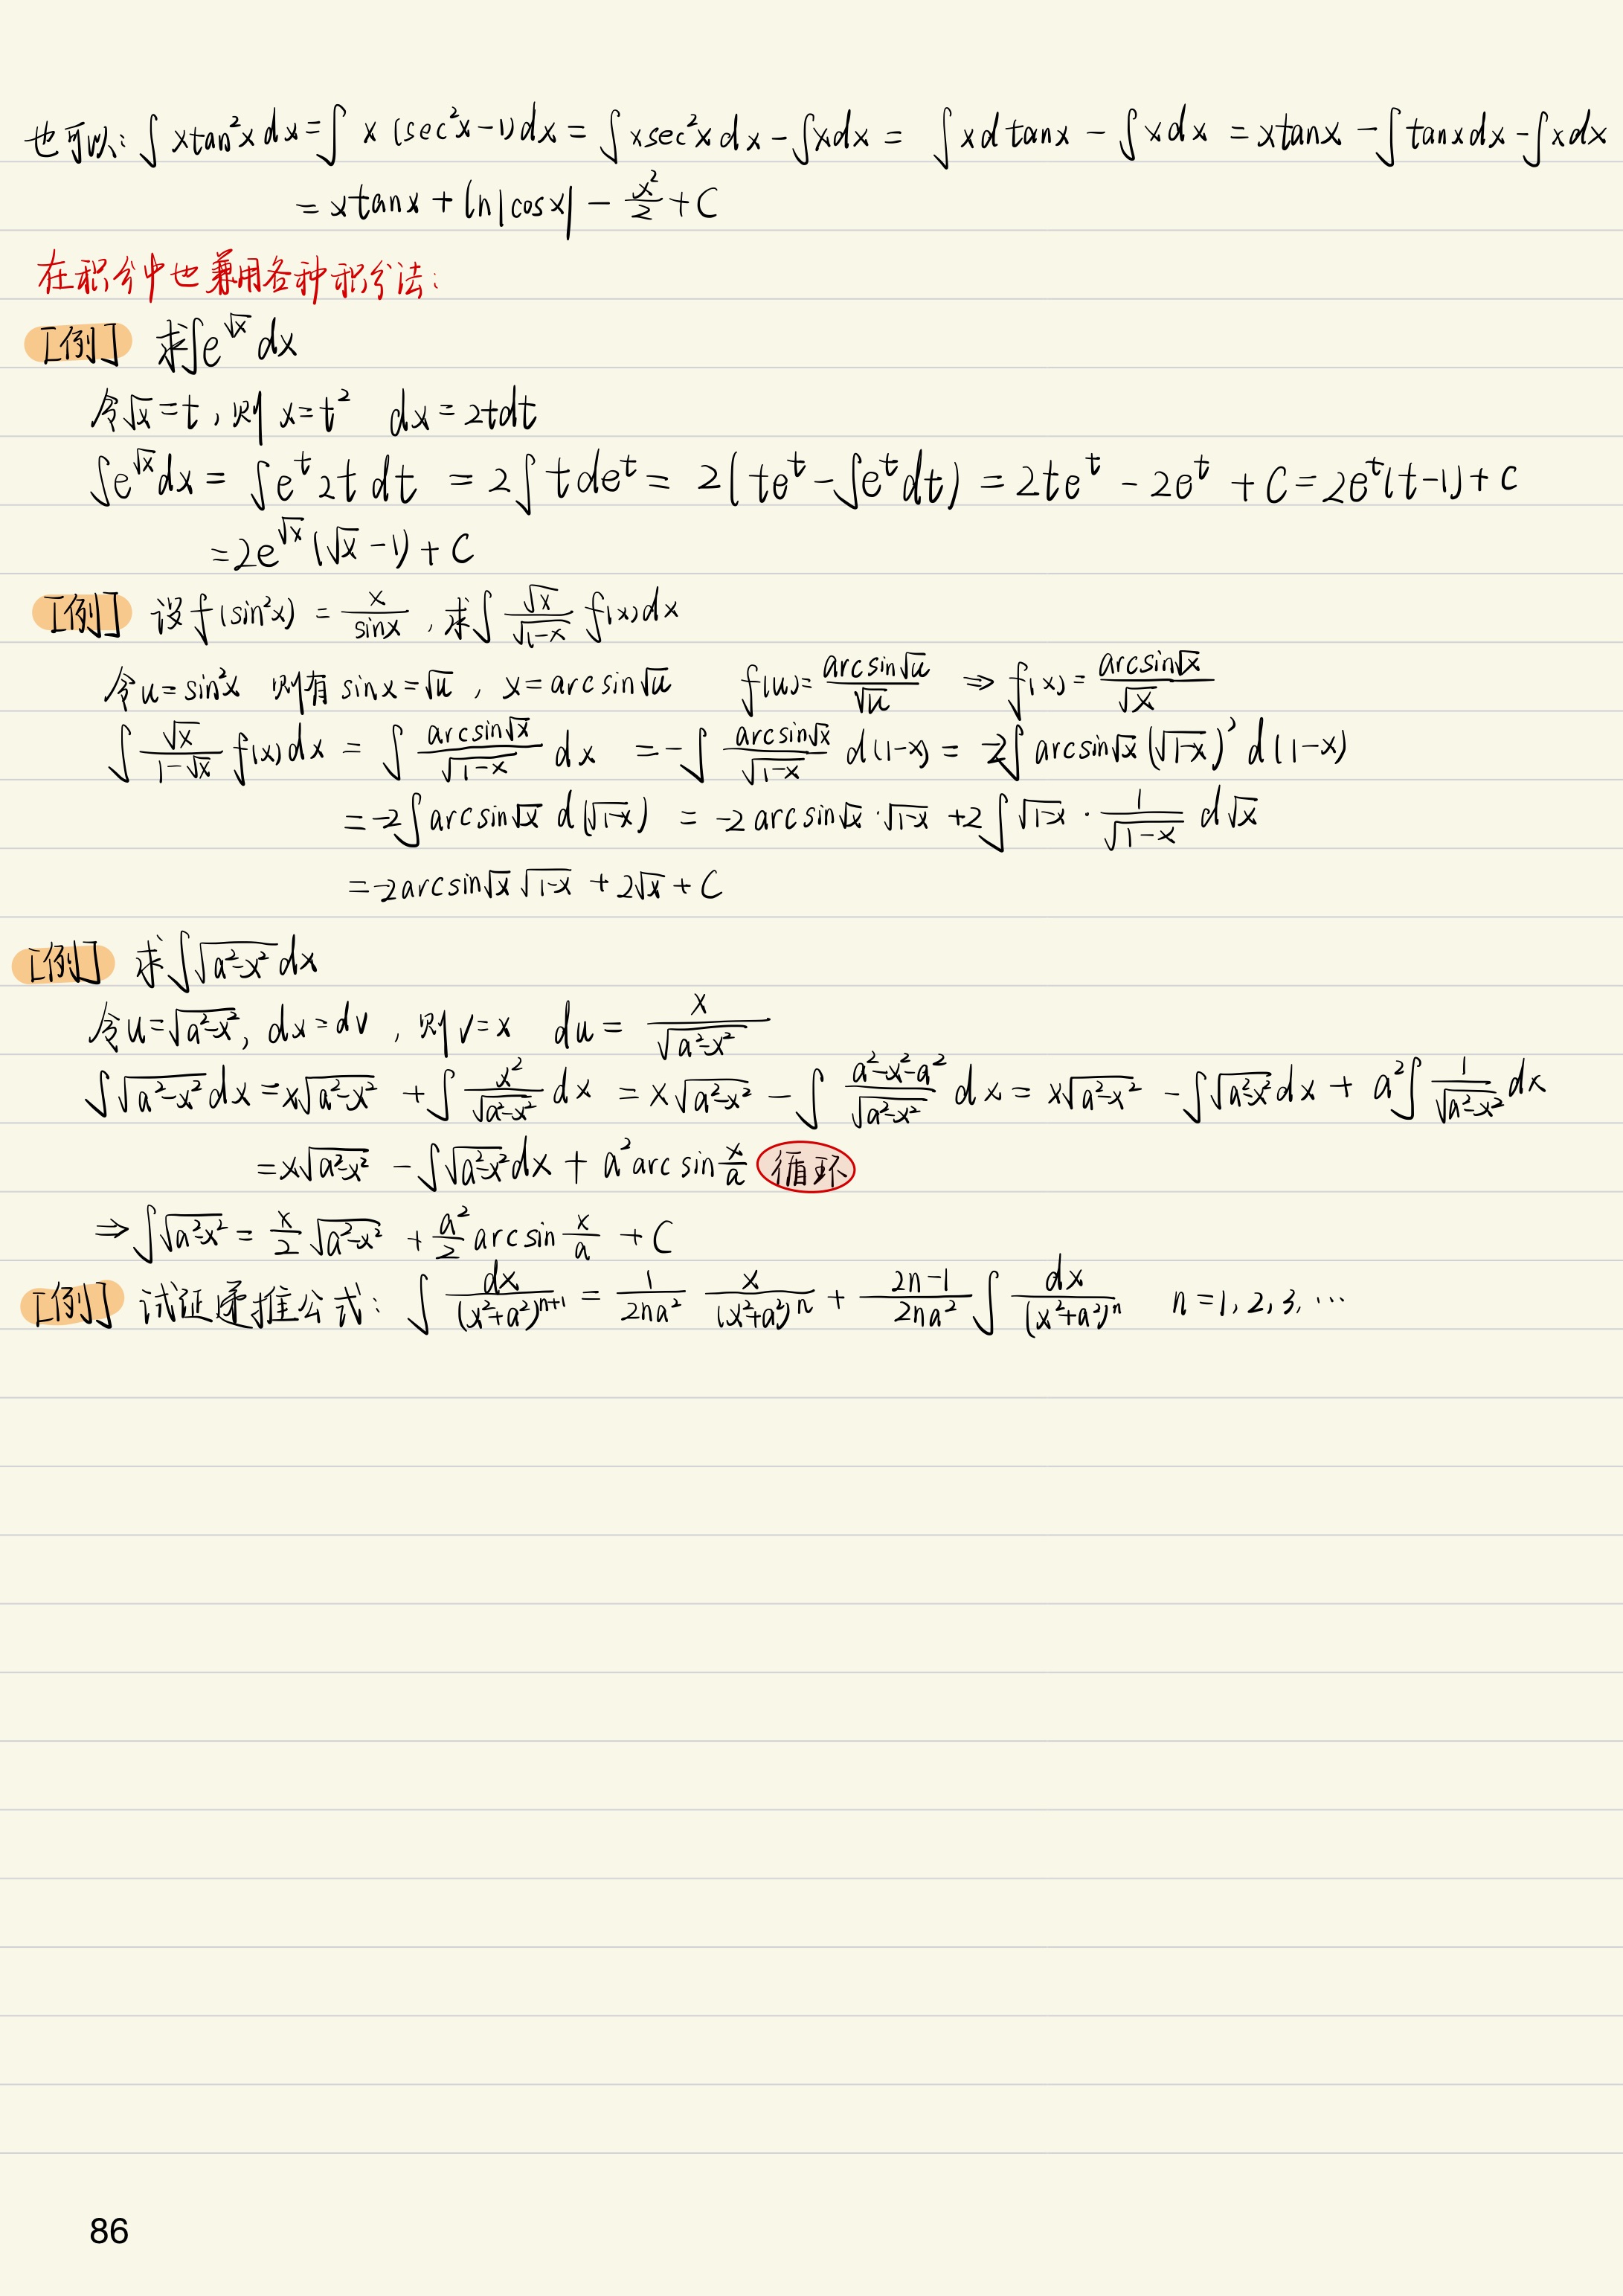 也可以: ∫ x tan²x dx = ∫ x (sec²x - 1) dx = ∫ x sec²x dx - ∫ x dx = ∫ x d tanx - ∫ x dx = x tanx - ∫ tanx dx - ∫ x dx
= x tanx + ln|cosx| - x²/2 + C
在积分中也兼用各种积分法:
[例] 求∫ e^√x dx
令√x = t, 则 x = t² dx = 2tdt
∫ e^√x dx = ∫ e^t 2t dt = 2∫ t de^t = 2(te^t - ∫ e^t dt) = 2te^t - 2e^t + C = 2e^t(t-1) + C
= 2e^√x (√x - 1) + C
[例] 设 f(sin²x) = x/sinx, 求∫ √x/√(1-x) f(x) dx
令 u = sin²x 则有 sinx = √u, x = arcsin√u f(u) = arcsin√u/√u ⇒ f(x) = arcsin√x/√x
∫ √x/(1-√x) f(x) dx = ∫ arcsin√x/√(1-x) dx = -∫ arcsin√x/√(1-x) d(1-x) = -2∫ arcsin√x (√(1-x))' d(1-x)
= -2∫ arcsin√x d(√(1-x)) = -2 arcsin√x · √(1-x) + 2∫ √(1-x) · 1/√(1-x) d√x
= -2 arcsin√x √(1-x) + 2√x + C
[例] 求∫ √(a²-x²) dx
令 u = √(a²-x²), dx = dv, 则 v = x du = x/√(a²-x²)
∫ √(a²-x²) dx = x√(a²-x²) + ∫ x²/√(a²-x²) dx = x√(a²-x²) - ∫ (a²-x²-a²)/√(a²-x²) dx = x√(a²-x²) - ∫ √(a²-x²) dx + a²∫ 1/√(a²-x²) dx
= x√(a²-x²) - ∫ √(a²-x²) dx + a² arcsin x/a 循环
⇒ ∫ √(a²-x²) = x/2 √(a²-x²) + a²/2 arcsin x/a + C
[例] 试证递推公式: ∫ dx/(x²+a²)^(n+1) = 1/(2na²) x/(x²+a²)^n + (2n-1)/(2na²) ∫ dx/(x²+a²)^n n = 1, 2, 3, ⋯
86